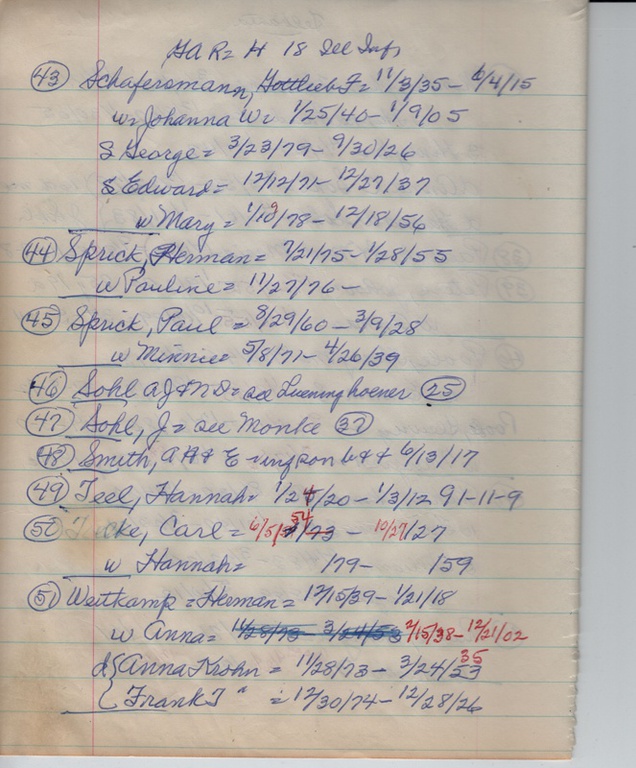 GAR = H 18 See Info
43 Schafersmann, Gottlieb F = 11/3/35 - 6/4/15
w = Johanna W = 1/25/40 - 1/9/05
S George = 3/23/79 - 9/30/26
S Edward = 12/12/71 - 12/27/37
w Mary = 1/10/78 - 12/18/56
44 Sprick, Herman = 7/21/75 - 1/28/55
w Pauline = 11/27/76 -
45 Sprick, Paul = 8/29/60 - 3/9/28
w Minnie = 5/8/71 - 4/26/39
46 Sohl AJ & ND = see Lueninghoener 25
47 Sohl, J = see Monke 37
48 Smith, AH & E = inf son b & d 6/13/17
49 Teel, Hannah = 1/24/20 - 1/3/12 91-11-9
50 Tucke, Carl = 6/5/54 - 10/27/27
w Hannah = /79 - /59
51 Weitkamp = Herman = 12/15/39 - 1/21/18
w Anna = 11/28/73 - 3/24/53 2/15/38 - 12/21/02
d { Anna Krohn = 11/28/73 - 3/24/53 35
{ Frank J " = 12/30/74 - 12/28/26